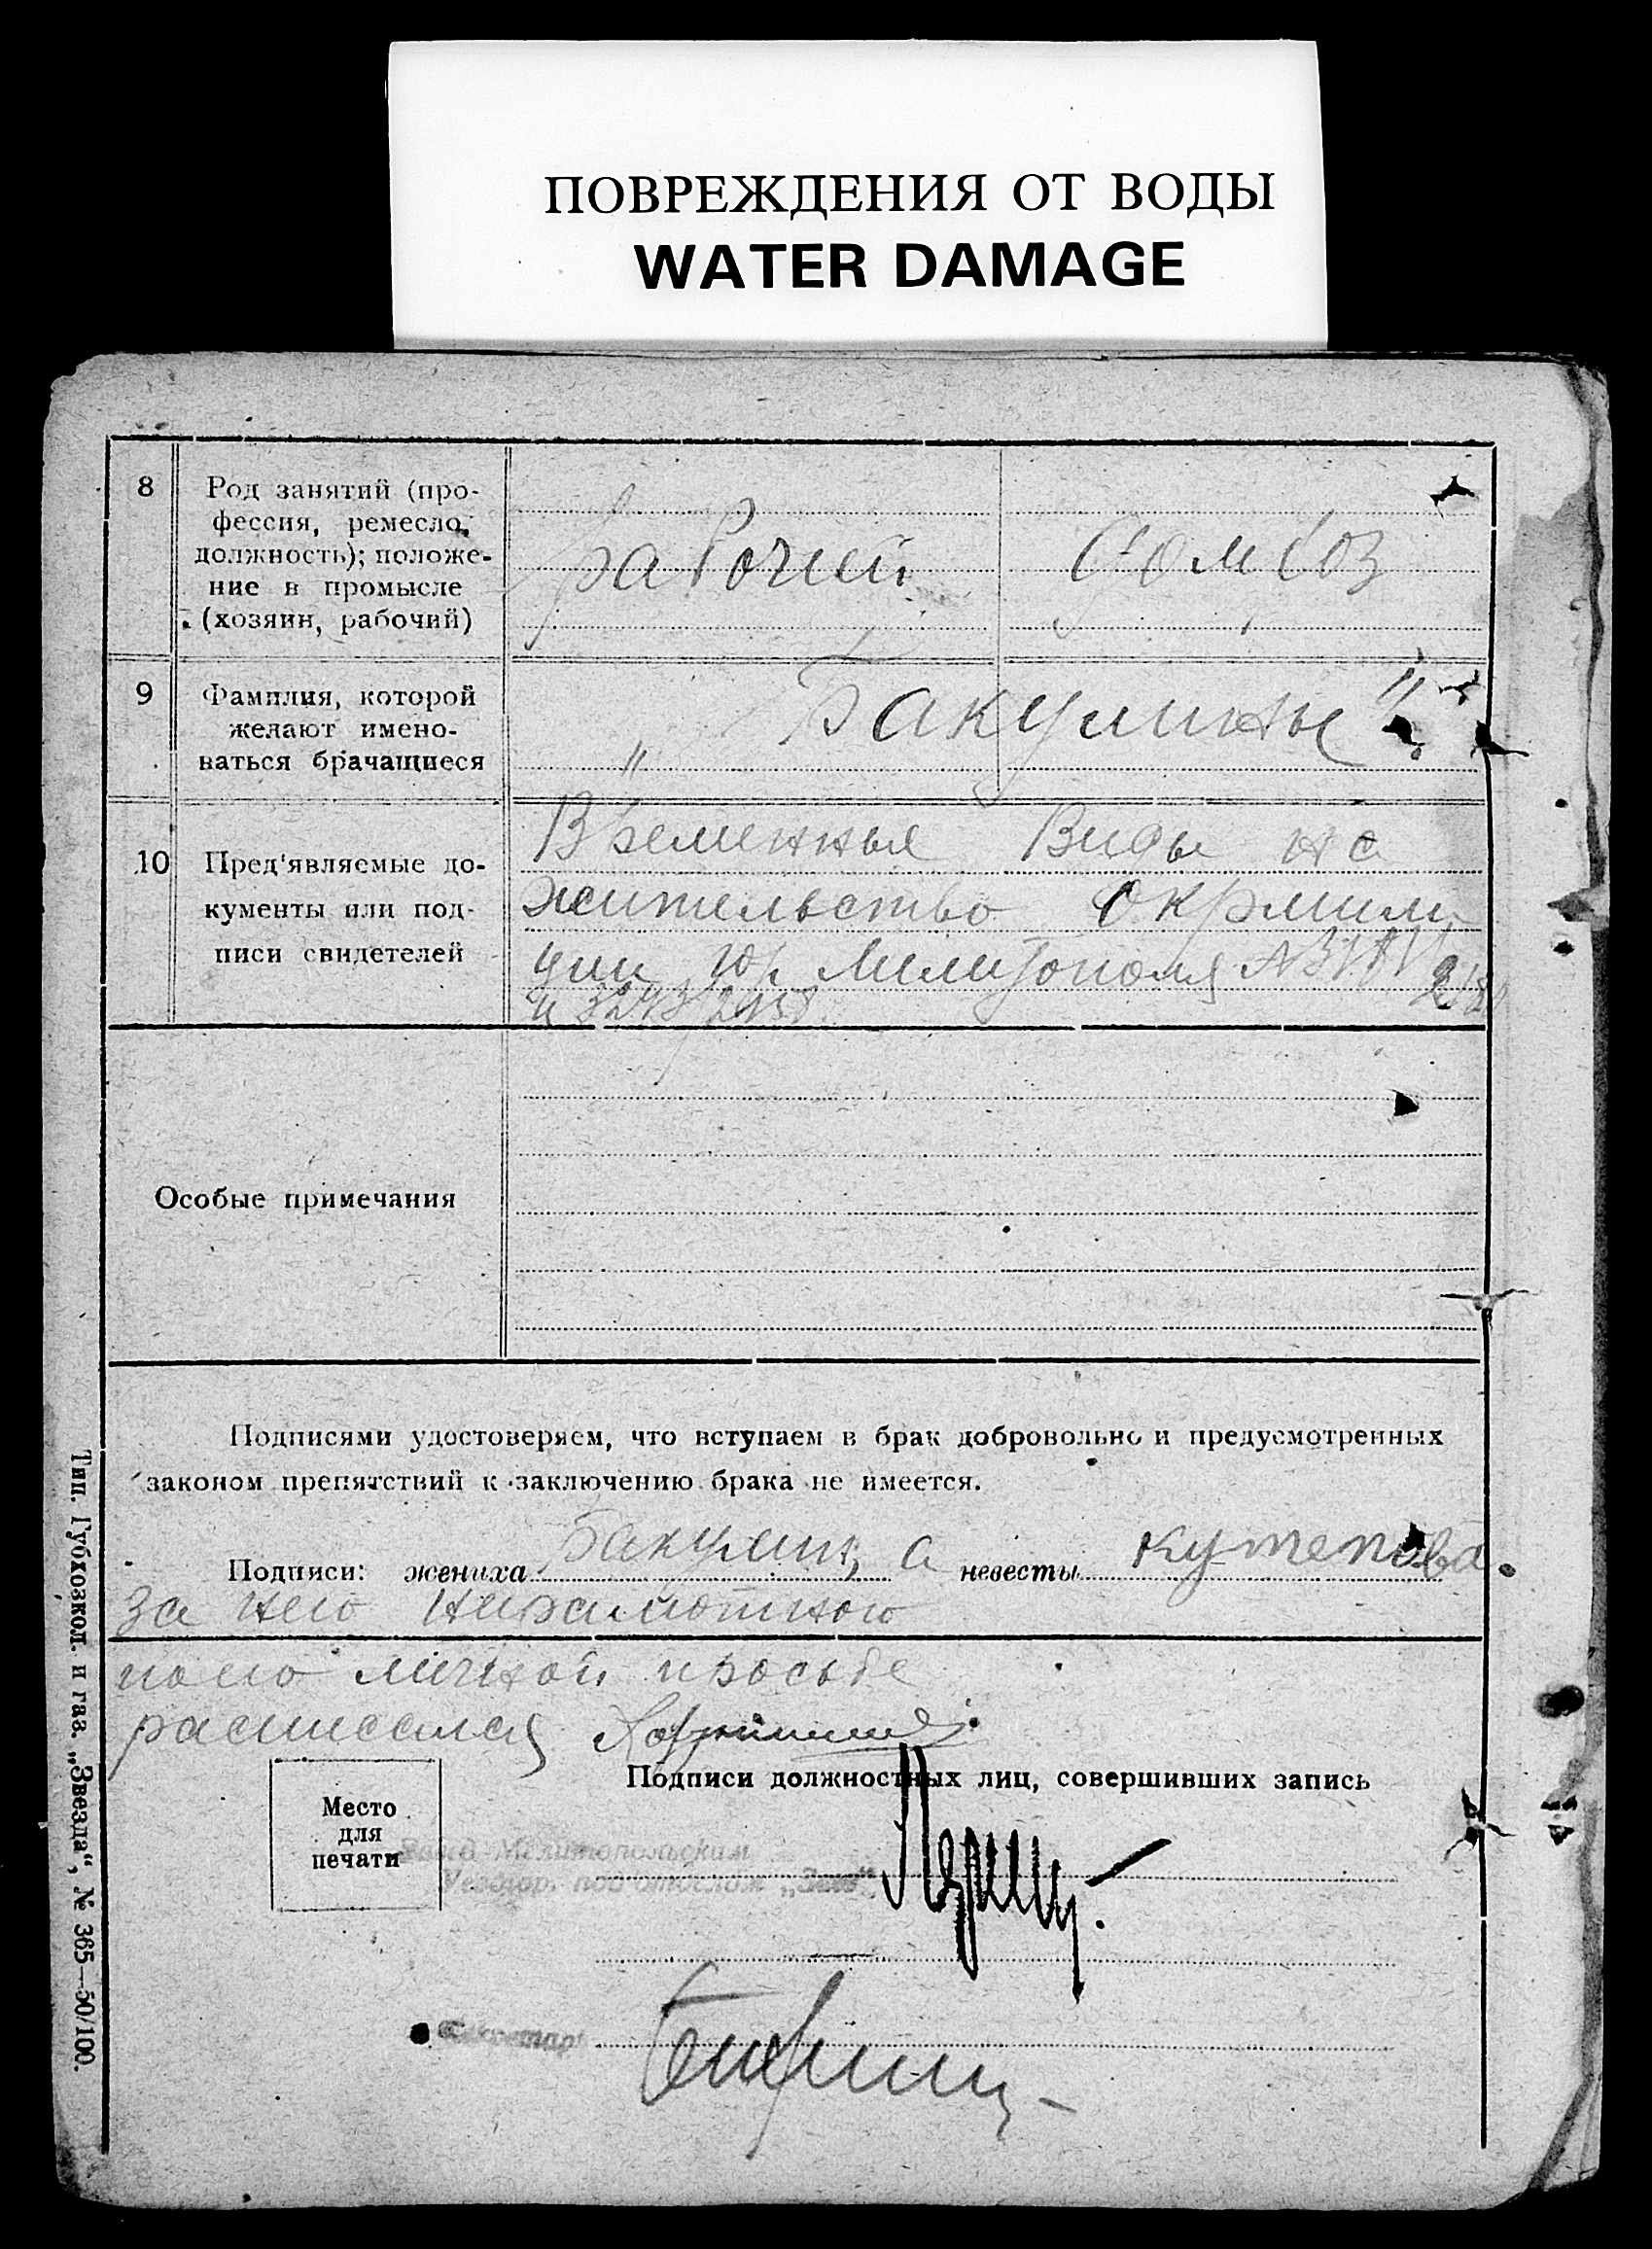 ПОВРЕЖДЕНИЯ ОТ ВОДЫ
WATER DAMAGE
8
Род занятий (про-
фессия, ремесло,
должность); положе-
ние в промысле
(хозяин, рабочий)
рабочий
домхоз
9
Фамилия, которой
желают имено-
ваться брачащиеся
" Бакулины "
10
Пред'являемые до-
кументы или под-
писи свидетелей
Временные Виды на
жительство Окрмили
ции гор Мелитополя
и 3243
Особые примечания
Подписями удостоверяем, что вступаем в брак добровольно и предусмотренных
законом препятствий к заключению брака не имеется.
Подписи: жениха Бакулин, а невесты Кутепова
за него неграмотного
по его личной просьбе
расписался
Подписи должностных лиц, совершивших запись
Место
для
печати
Завед Мелитопольским
под'отделом „Загс“
Секретарь
Тип. Губхозкол. и газ. „Звезда“, № 365—50/100.